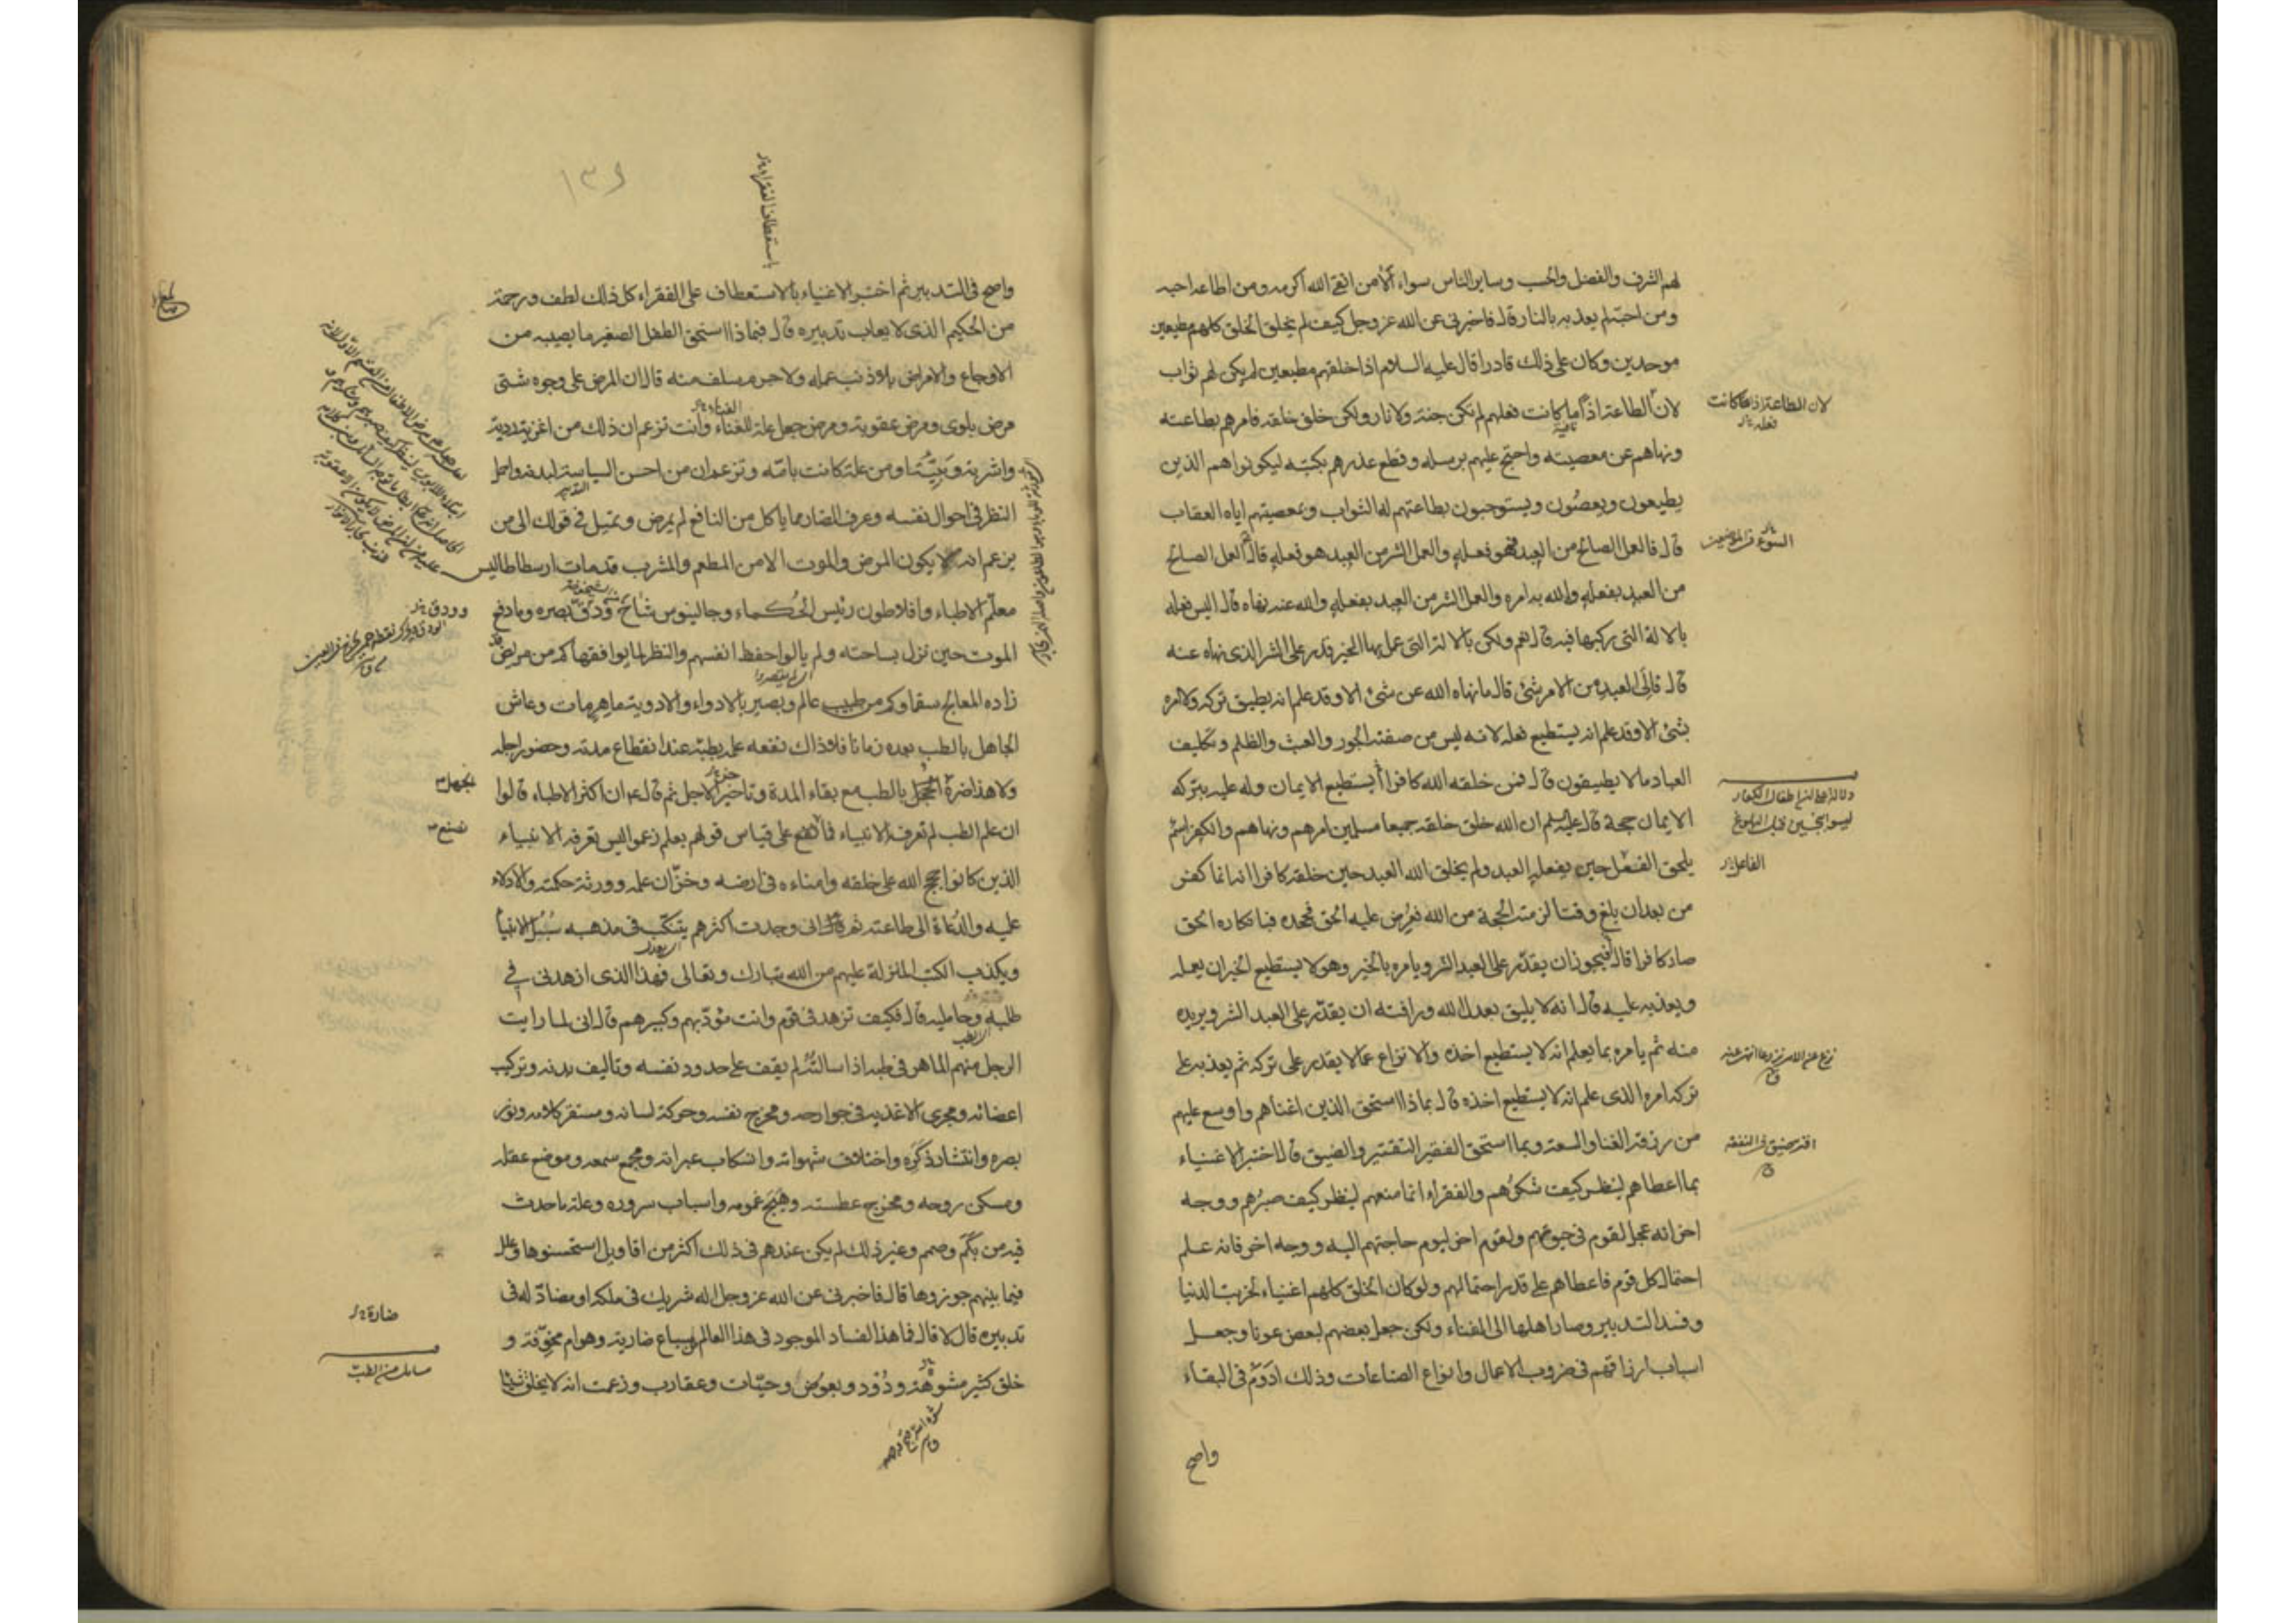 لهم الشرف والفضل والحسب وساير الناس سواء الا من اتقى الله اكرمه ومن اطاعه احبه
ومن احبه لم يعذبه بالنار قال فاخبرنى عن الله عز وجل كيف لم يخلق الخلق كلهم مطيعين
موحدين وكان على ذلك قادرا قال عليه السلام اذا خلقهم مطيعين لم يكن لهم ثواب
لان الطاعة اذا ما كانت فعلهم لم تكن جنة ولا نار ولكن خلق خلقه فامرهم بطاعته
ونهاهم عن معصيته واحتج عليهم برسله وقطع عذرهم بكتبه ليكونوا هم الذين
يطيعون ويعصُون ويستوجبون بطاعتهم له الثواب وبمعصيتهم اياه العقاب
قال فالعمل الصالح من العبد هو فعله والعمل الشر من العبد هو فعله قال العمل الصالح
من العبد بفعله والله به امره والعمل الشر من العبد بفعله والله عنه نهاه قال اليس فعله
بالالة التى ركبها فيه قال نعم ولكن بالالة التى عمل بها الخير قدر على الشر الذى نهاه عنه
قال فالى العبد من الامر شئ قال ما نهاه الله عن شئ الا وقد علم انه يطيق تركه ولا امره
بشئ الا وقد علم انه يستطيع فعله لانه ليس من صفته الجور والعبث والظلم وتكليف
العباد ما لا يطيقون قال فمن خلقه الله كافرا أيستطيع الايمان وله عليه بتركه
الايمان حجة قال عليه السلم ان الله خلق خلقه جميعا مسلمين امرهم ونهاهم والكفر اسم
يلحق الفعل حين يفعله العبد ولم يخلق الله العبد حين خلقه كافرا انه انما كفر
من بعد ان بلغ وقتا لزمته الحجة من الله فعُرِض عليه الحق فجحده فبانكاره الحق
صار كافرا قال فيجوز ان يقدّر على العبد الشر ويامره بالخير وهو لا يستطيع الخير ان يعمله
ويعذبه عليه قال انه لا يليق بعدل الله ورافته ان يقدّر على العبد الشر ويريده
منه ثم يامره بما يعلم انه لا يستطيع اخذه والانزاع عما لا يقدر على تركه ثم يعذبه على
تركه امره الذى علم انه لا يستطيع اخذه قال بماذا استحق الذين اغناهم واوسع عليهم
من رزقه الغنا والسعة وبما استحق الفقير التقتير والضيق قال اختبر الاغنياء
بما اعطاهم لينظر كيف شكرُهم والفقراء انما منعهم لينظر كيف صبرُهم ووجه
اخر انه عجل لقوم فى حيوتهم ولقوم اخر ليوم حاجتهم اليه ووجه اخر فانه علم
احتمال كل قوم فاعطاهم على قدر احتمالهم ولو كان الخلق كلهم اغنياء لخربت الدنيا
وفسد التدبير وصار اهلها الى الفناء ولكن جعل بعضهم لبعض عونا وجعل
اسباب ارزاقهم فى ضروب الاعمال وانواع الصناعات وذلك ادوَم فى البقاء
واصح
لان الطاعة اذا ما كانت
الفاعل
١٣٦
واصح فى التدبير ثم اختبر الاغنياء بالاستعطاف على الفقراء كل ذلك لطف ورحمة
من الحكيم الذى لا يعاب تدبيره قال فبماذا استحق الطفل الصغير ما يصيبه من
الاوجاع والامراض بلا ذنب عمله ولا جرم سلف منه قال ان المرض على وجوه شتى
مرض بلوى ومرض عقوبة ومرض جعل علة للفناء وانت تزعم ان ذلك من اغذية ردية
واشربة وبيّة او من علة كانت بامّه وتزعم ان من احسن السياسة لبدنه واجمل
النظر فى احوال نفسه وعرف الضار مما ياكل من النافع لم يمرض وتميل فى قولك الى من
يزعم انه لا يكون المرض والموت الا من المطعم والمشرب قد مات ارسطاطاليس
معلّم الاطباء وافلاطون رئيس الحُكماء وجالينوس شاخ ودقّ بصره وما دفع
الموت حين نزل بساحته ولم يالوا حفظ انفسهم والنظر لما يوافقها كم من مريض
زاده المعالج سقما وكم من طبيب عالم وبصير بالادواء والادوية ماهر مات وعاش
الجاهل بالطب بعده زمانا فلا ذاك نفعه علمه بطبه عند انقطاع مدته وحضور اجله
ولا هذا ضرّه الجهل بالطب مع بقاء المدة وتاخير الاجل ثم قال ع ان اكثر الاطباء قالوا
ان علم الطب لم تعرفه الانبياء فما نصنع على قياس قولهم بعلم زعموا ليس تعرفه الانبياء
الذين كانوا حجج الله على خلقه وامناءه فى ارضه وخزّان علمه وورثة حكمته والادلاء
عليه والدُعاة الى طاعته ثم قال انى وجدت اكثرهم يتنكّب فى مذهبه سُبُل الانبيا
ويكذب الكتب المنزلة عليهم من الله تبارك وتعالى فهذا الذى ازهدنى فى
طلبه وحامليه قال فكيف تزهد فى قوم وانت مؤدّبهم وكبيرهم قال انى لما رايت
الرجل منهم الماهر فى طبه اذا سالتُه لم يقف على حدود نفسه وتاليف بدنه وتركيب
اعضائه ومجرى الاغذية فى جوارحه ومخرج نفسه وحركة لسانه ومستقر كلامه ونور
بصره وانتشار ذكَره واختلاف شهواته وانسكاب عبراته ومجمع سمعه وموضع عقله
ومسكن روحه ومخرج عطسته وهيَج غمومه واسباب سروره وعلة ما حدث
فيه من بكَم وصمم وغير ذلك لم يكن عندهم فى ذلك اكثر من اقاويل استحسنوها وعلل
فيما بينهم جوزوها قال فاخبرنى عن الله عز وجل اله شريك فى ملكه او مضادّ له فى
تدبيره قال لا قال فما هذا الفساد الموجود فى هذا العالم من سباع ضارية وهوام مخوّفة و
خلق كثير مشوّهة ودُوْد وبعوض وحيّات وعقارب وزعمت انه لا يخلق شيئا